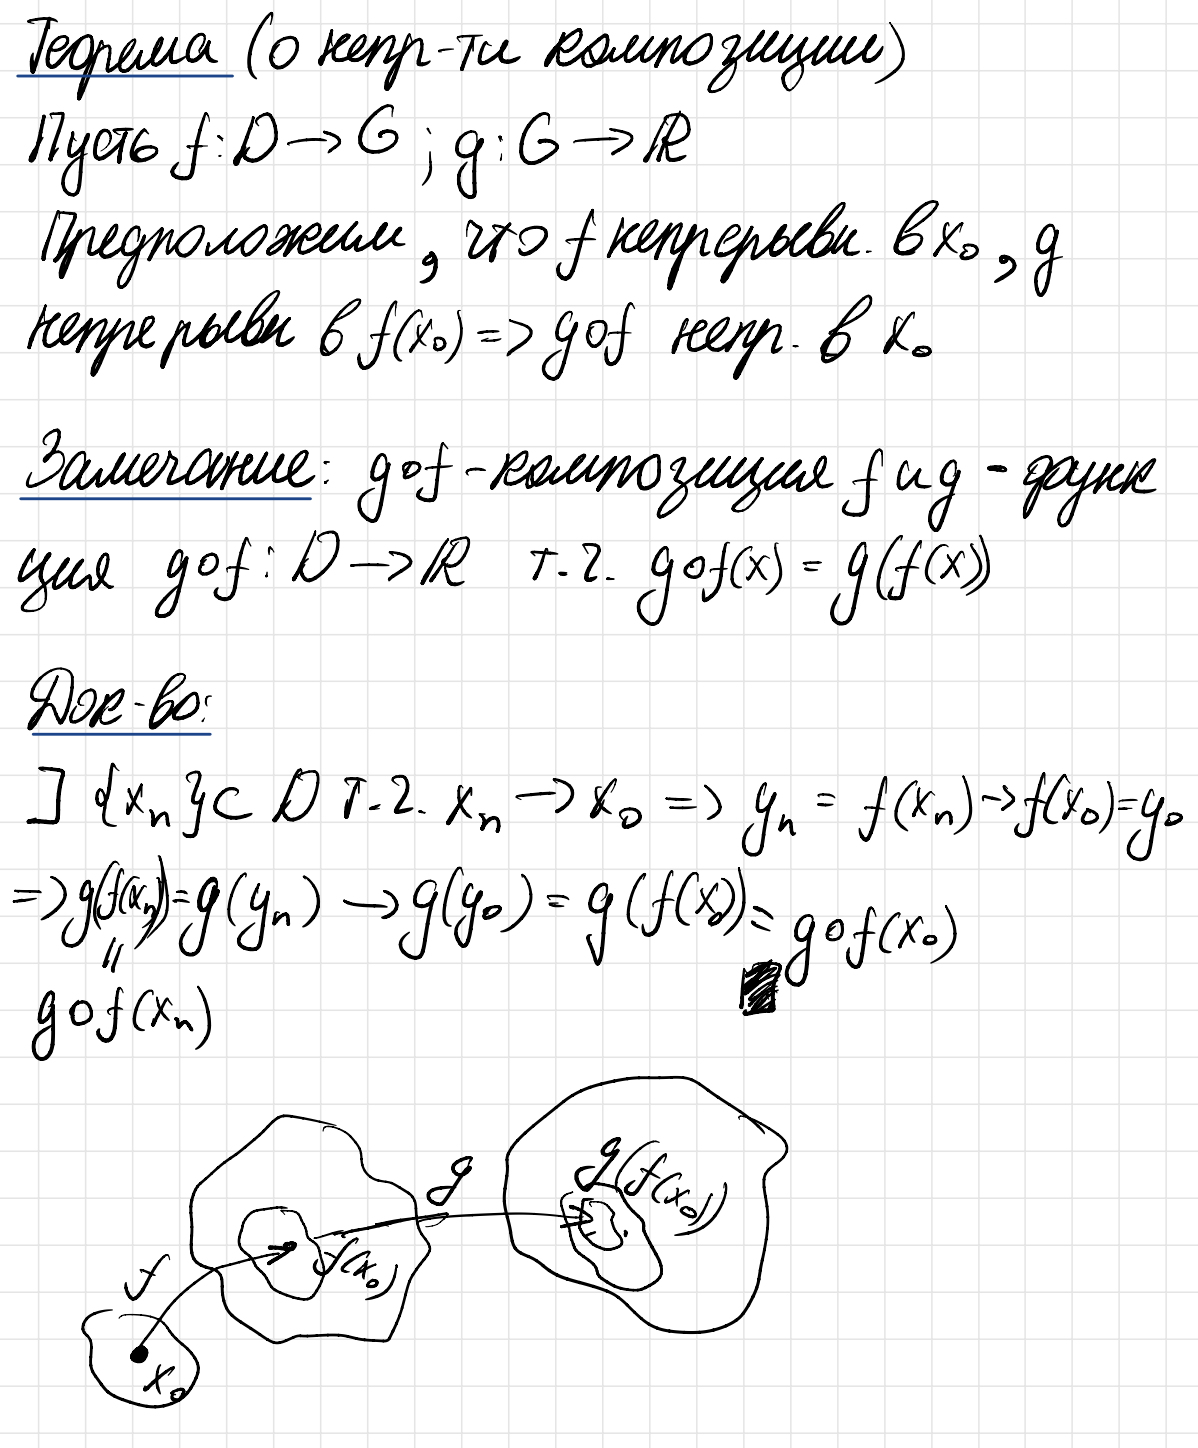 Теорема (о непр-ти композиции)
Пусть f: D → G ; g: G → ℝ
Предположим, что f непрерывн. в x₀, g
непрерывн в f(x₀) => g∘f непр. в x₀
Замечание: g∘f - композиция f и g - функ
ция g∘f: D → ℝ т.ч. g∘f(x) = g(f(x))
Док-во:
] {xₙ} ⊂ D т.ч. xₙ → x₀ => yₙ = f(xₙ) → f(x₀) = y₀
=> g(f(xₙ)) = g(yₙ) → g(y₀) = g(f(x₀)) = g∘f(x₀)
||
g∘f(xₙ)
g
g(f(x₀))
f
f(x₀)
x₀